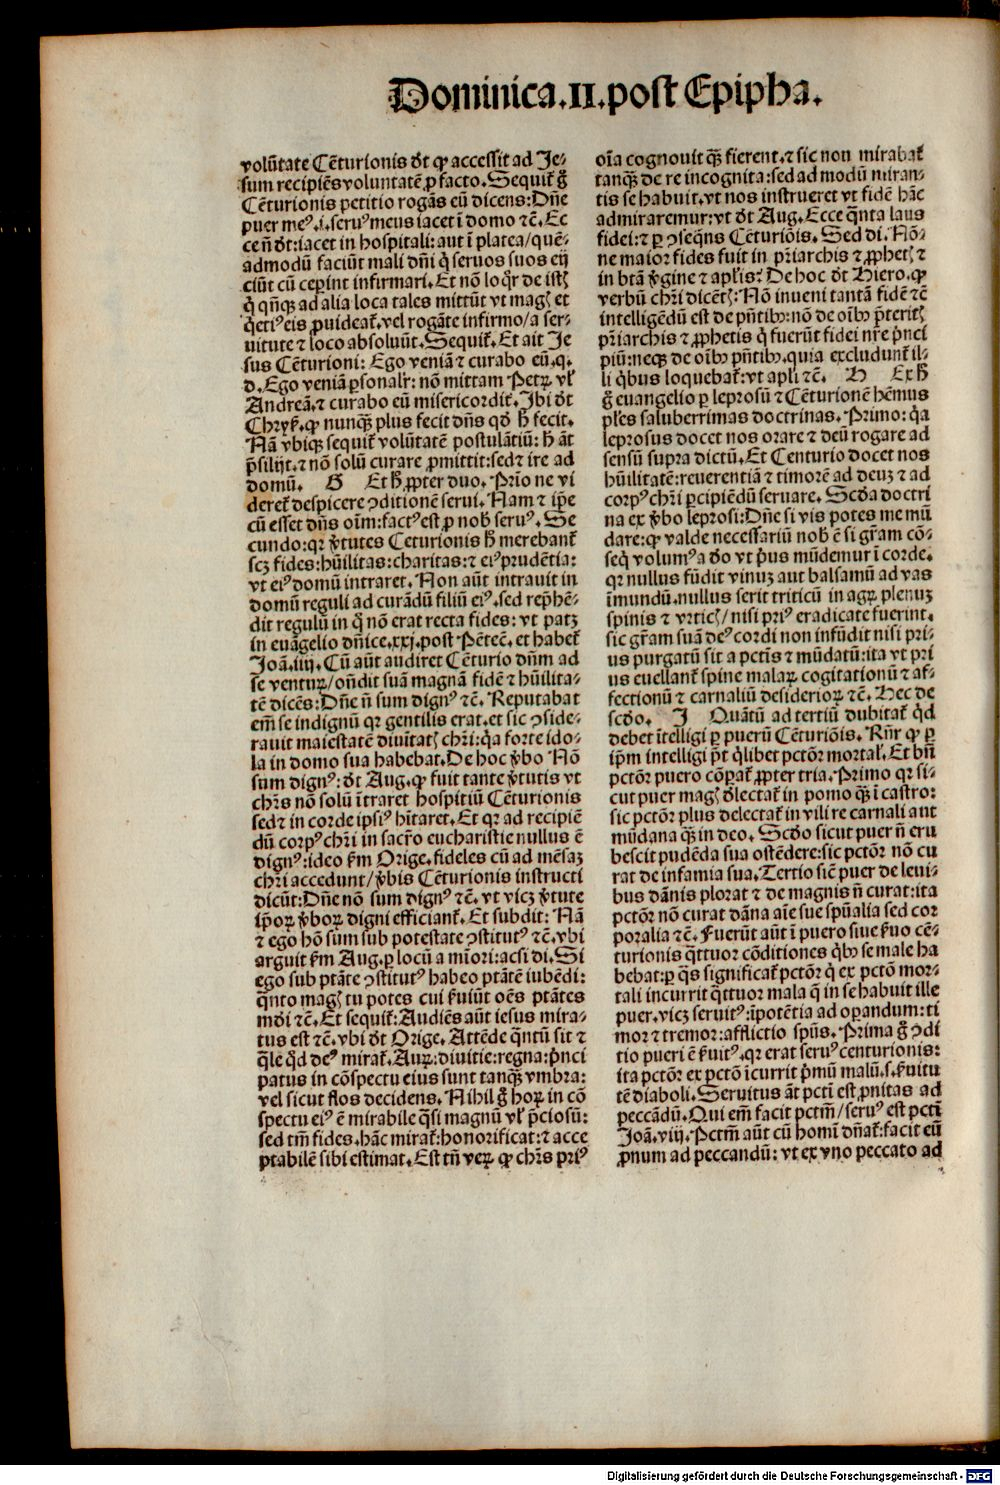 Dominica.II.post Epipha.
volūtate Cēturionis d̄t ꝙ accessit ad Je-
sum recipiēs voluntatē ꝓ facto. Sequit̄ g̊
Cēturionis petitio rogās eū dicens: Dn̄e
puer meꝰ.i.seruꝰ meus iacet ī domo ⁊c̄. Ec
ce n̄ d̄t: iacet in hospitali: aut ī platea/quē-
admodū faciūt mali dn̄i q̇ seruos suos eij
ciūt cū ceperint infirmari. Et nō loq̇r de istꝭ
q̇ qn̄qꝫ ad alia loca tales mittūt vt magꝭ et
q̇etiꝰ eis ꝓuideat̄. vel rogāte infirmo/a ser-
uitute ⁊ loco absoluūt. Sequit̄. Et ait Je
sus Cēturioni: Ego veniā ⁊ curabo eū.q.
d. Ego veniā ꝑsonalr̄: nō mittam Petꝝ vl̄
Andreā.⁊ curabo eū misericordit̄. Jbi d̄t
Chryẜ. ꝙ nunqꝫ̄ plus fecit dn̄s qd̊ h̄ fecit.
Nā vbiqꝫ sequit̄ volūtatē postulātiū: h̄ āt
p̄silijt.⁊ nō solū curare ꝓmittit: sedꝫ ire ad
domū. G Et h̄ ꝓpter duo. Prīo ne vi
deret̄ despicere ↄditionē serui. Nam ⁊ ip̄e
cū esset dn̄s oīm: factꝰ est ꝓ nob̄ seruꝰ. Se
cundo: qꝛ v̓tutes Ceturionis h̄ merebant̄
scꝫ fides: hūilitas: charitas: ⁊ eiꝰ prudētia:
vt eiꝰ domū intraret. Non aūt intrauit in
domū reguli ad curādū filiū eiꝰ. sed rep̄hē-
dit regulū in q̊ nō erat recta fides: vt patꝫ
in euāgelio dn̄ice.xxj.post Pētec̄. et habet̄
Joā.iiij. Cū aūt audiret Cēturio dn̄m ad
se venturꝝ/on̄dit suā magnā fidē ⁊ hūilita-
tē dicēs: Dn̄e n̄ sum dignꝰ ⁊c̄. Reputabat
em̄ se indignū qꝛ gentilis erat. et sic ↄside-
rauit maiestatē diuītatꝭ chr̄i: q̇a forte ido-
la in domo sua habebat. De hoc v̓bo Nō
sum dignꝰ: d̄t Aug. ꝙ fuit tante v̓tutis vt
chr̄s nō solū ītraret hospitiū Cēturionis
sedꝫ in corde ipsiꝰ hītaret. Et qꝛ ad recipiē
dū corpꝰ chr̄i in sacr̄o eucharistie nullus ē
dignꝰ: ideo ẜm Orige. fideles cū ad mēsaꝫ
chr̄i accedunt/v̓bis Cēturionis instructi
dicūt: Dn̄e nō sum dignꝰ ⁊c̄. vt vicꝫ v̓tute
ip̄oꝝ v̓boꝝ digni efficiant̄. Et subdit: Nā
⁊ ego hō sum sub potestate ↄstitutꝰ ⁊c̄. vbi
arguit ẜm Aug. ꝑ locū a mīori: acsi di. Si
ego sub ptāte ↄstitutꝰ habeo ptātē iubēdi:
q̄nto magꝭ tu potes cui ẜuiūt oēs ptātes
mūdi ⁊c̄. Et sequit̄: Audiēs aūt iesus mira-
tus est ⁊c̄. vbi d̄t Orige. Attēde q̄ntū sit ⁊
q̄le qd̄ deꝰ mirat̄. Auꝝ: diuitie: regna: p̄nci
patus in cōspectu eius sunt tanqꝫ̄ vmbra:
vel sicut flos decidens. Nihil g̊ hoꝝ in cō
spectu eiꝰ ē mirabile q̄si magnū vl̄ p̄ciosū:
sed tm̄ fides. hāc mirat̄: honorificat: ⁊ acce
ptabilē sibi estimat. Est tn̄ veꝝ ꝙ chr̄s priꝰ
oīa cognouit qꝫ̄ fierent.⁊ sic non mirabat̄
tanqꝫ̄ de re incognita: sed ad modū miran-
tis se habuit. vt nos instrueret vt fidē hāc
admiraremur: vt d̄t Aug. Ecce q̄nta laus
fidei: ⁊ ꝑ ↄseq̄ns Cēturiōis. Sed di. Nō-
ne maior fides fuit in pr̄iarchis ⁊ ꝓphetꝭ ⁊
in btā v̓gine ⁊ apl̄is? De hoc d̄t Hiero. ꝙ
verbū chr̄i dicētꝭ: Nō inueni tantā fidē ⁊c̄
intelligēdū est de pn̄tibꝰ: nō de oībꝰ p̄teritꝭ
pr̄iarchis ⁊ ꝓphetis q̇ fuerūt fidei nr̄e p̄nci
piū: neqꝫ de oībꝰ pn̄tibꝰ. quia excludunt̄ il-
li q̇bus loquebat̄: vt apl̄i ⁊c̄. H Ex h̄
g̊ euangelio ꝑ leprosū ⁊ Cēturionē hēmus
pl̄es saluberrimas doctrinas. Primo: q̇a
leprosus docet nos orare ⁊ deū rogare ad
sensū supra dictū. Et Centurio docet nos
hūilitatē: reuerentiā ⁊ timorē ad deuꝫ ⁊ ad
corpꝰ chr̄i ꝑcipiēdū seruare. Scd̄a doctri
na ex v̓bo leprosi: Dn̄e si vis potes me mū
dare: ꝙ valde necessariū nob̄ ē si gr̄am cō-
seq̇ volumꝰ a deo vt pͥus mūdemur ī corde.
qꝛ nullus fūdit vinuꝫ aut balsamū ad vas
īmundū. nullus serit triticū in agꝝ plenuꝫ
spinis ⁊ vrticꝭ/nisi priꝰ eradicate fuerint.
sic gr̄am suā deꝰ cordi non infūdit nisi pri-
us purgatū sit a pctīs ⁊ mūdatū: ita vt pri
us euellant̄ spine malaꝝ cogitationū ⁊ af-
fectionū ⁊ carnaliū desiderioꝝ ⁊c̄. Hec de
scd̄o. J Quātū ad tertiū dubitat̄ qd̄
debet ītelligi ꝑ puerū Cēturiōis. Rn̄r ꝙ ꝑ
ip̄m intelligi p̄t q̇libet pctōr mortal̄. Et bn̄
pctōr puero cōꝑat̄ ꝓpter tria. Primo qꝛ si-
cut puer magꝭ d̄lectat̄ in pomo qꝫ̄ ī castro:
sic pctōr plus delectat̄ in vili re carnali aut
mūdana qꝫ̄ in deo. Scd̄o sicut puer n̄ eru
bescit pudēda sua ostēdere: sic pctōr nō cu
rat de infamia sua. Tertio sic̄ puer de leui-
bus dānis plorat ⁊ de magnis n̄ curat: ita
pctōr nō curat dāna aīe sue sp̄ualia sed cor
poralia ⁊c̄. Fuerūt aūt ī puero siue ẜuo cē-
turionis q̄ttuor cōditiones q̇bꝰ se male ha
bebat: ꝑ q̄s significat̄ pctōr q̇ ex pctō mor-
tali incurrit q̄ttuor mala q̄ in se habuit ille
puer. vicꝫ seruitꝰ: īpotētia ad operandum: ti
mor ⁊ tremor: afflictio sp̄us. Prima g̊ ↄdi
tio pueri ē ẜuitꝰ. qꝛ erat seruꝰ centurionis:
ita pctōr ex pctō īcurrit p̄mū malū.s. ẜuitu
tē diaboli. Seruitus āt pcti est ꝓnitas ad
peccādū. Qui em̄ facit pctm̄/seruꝰ est pcti
Joā.viij. Pctm̄ aūt cū homī dn̄at̄: facit eū
ꝓnum ad peccandū: vt ex vno peccato ad
Digitalisierung gefördert durch die Deutsche Forschungsgemeinschaft - DFG